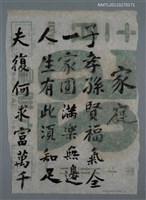 家庭
子孝孫賢福氣全
一家團滿樂無邊
人生有此須知足
夫復何求富萬千